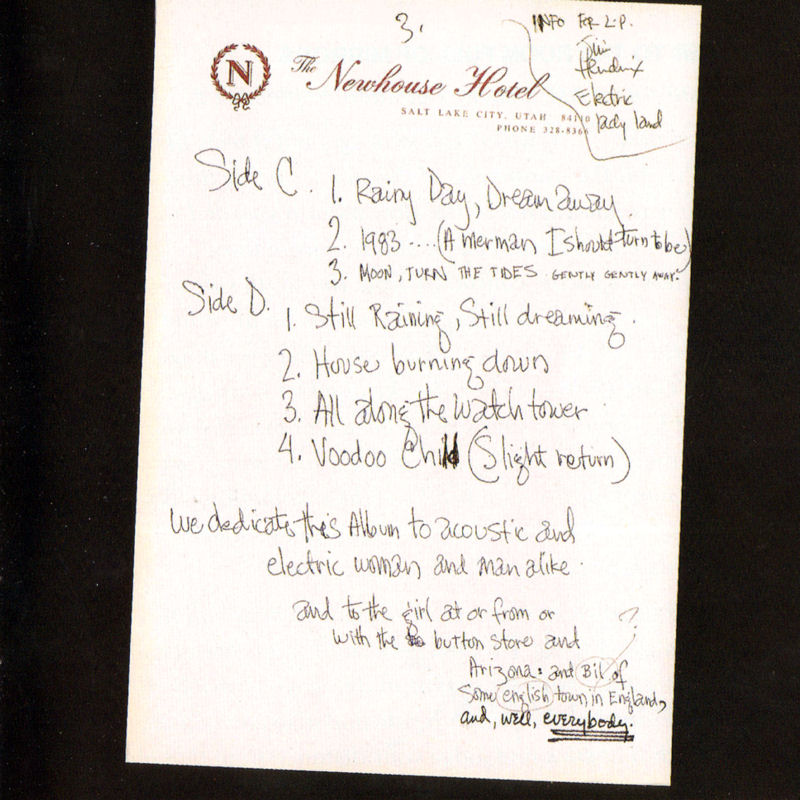 3.
INFO FOR L.P.
Jimi
Hendrix
Electric
lady land
N
The Newhouse Hotel
SALT LAKE CITY, UTAH 84110
PHONE 328-8366
Side C. 1. Rainy Day, Dream away.
2. 1983 .... (A merman I should turn to be)
3. MOON, TURN THE TIDES GENTLY GENTLY AWAY.
Side D. 1. Still Raining, Still dreaming.
2. House burning down
3. All along the watch tower
4. Voodoo Child (Slight return)
we dedicate this Album to acoustic and
electric woman and man alike.
and to the girl at or from or
with the button store and
?
Arizona: and Bil of
Some english town in England,
and, well, everybody.